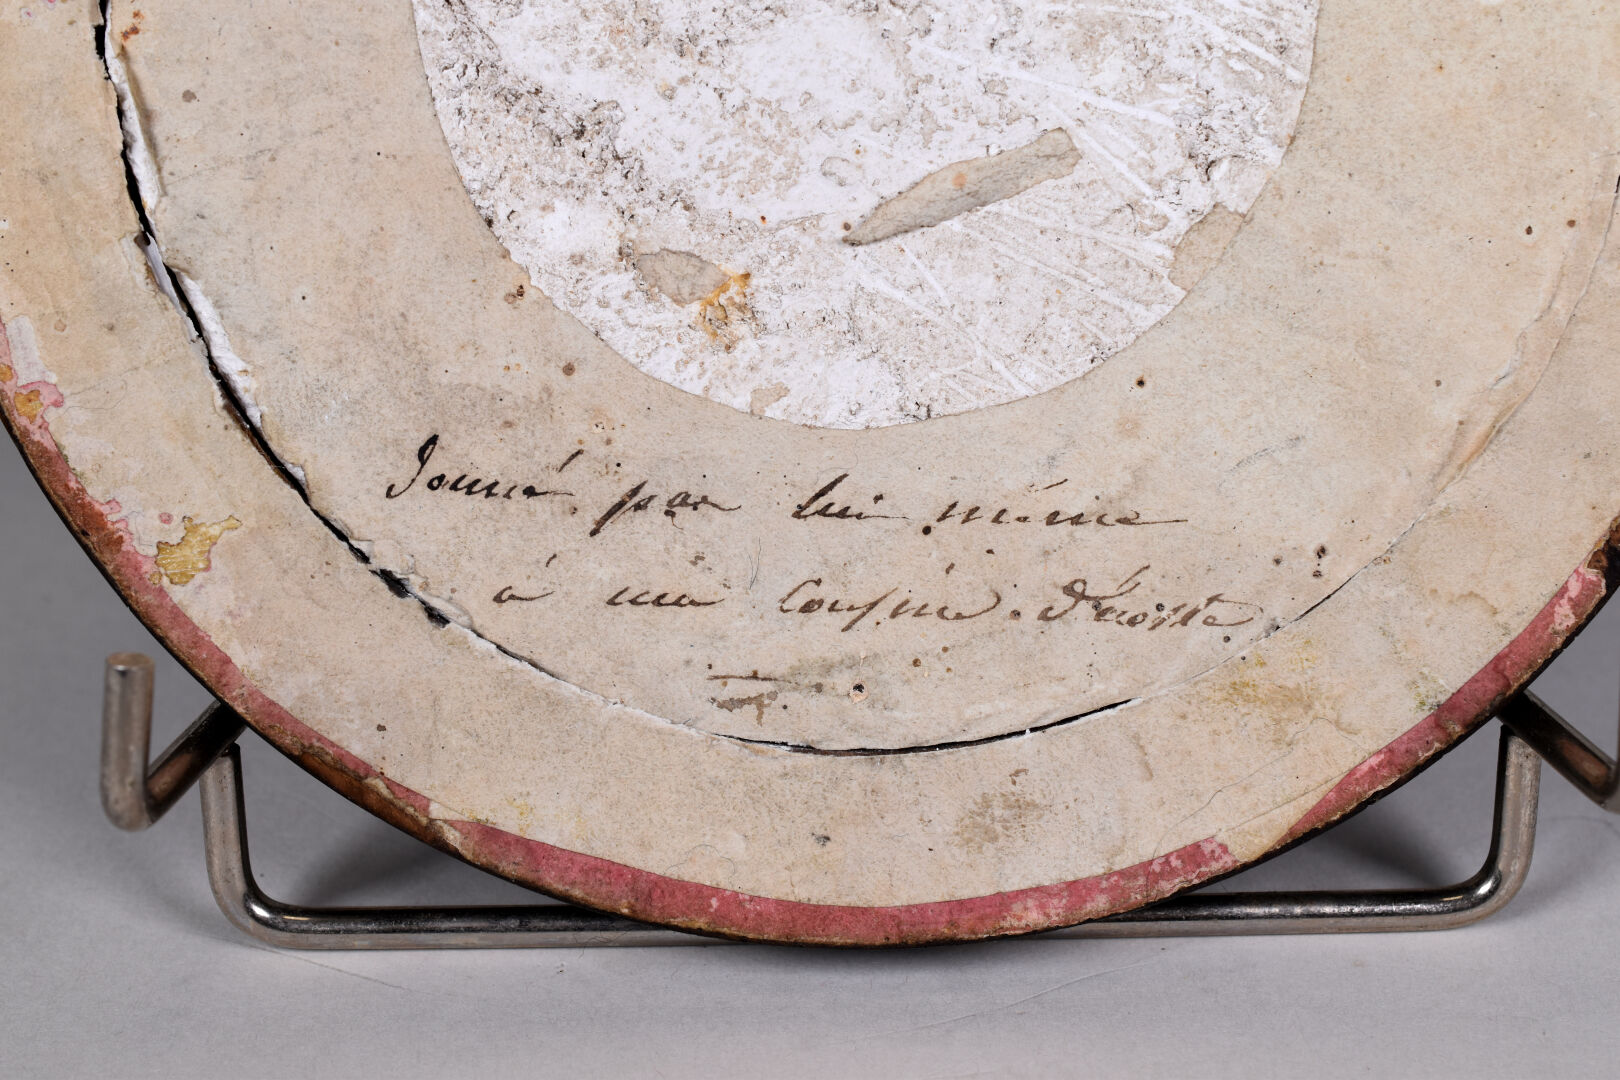 Donné par lui même
à ma Cousine d'écoste